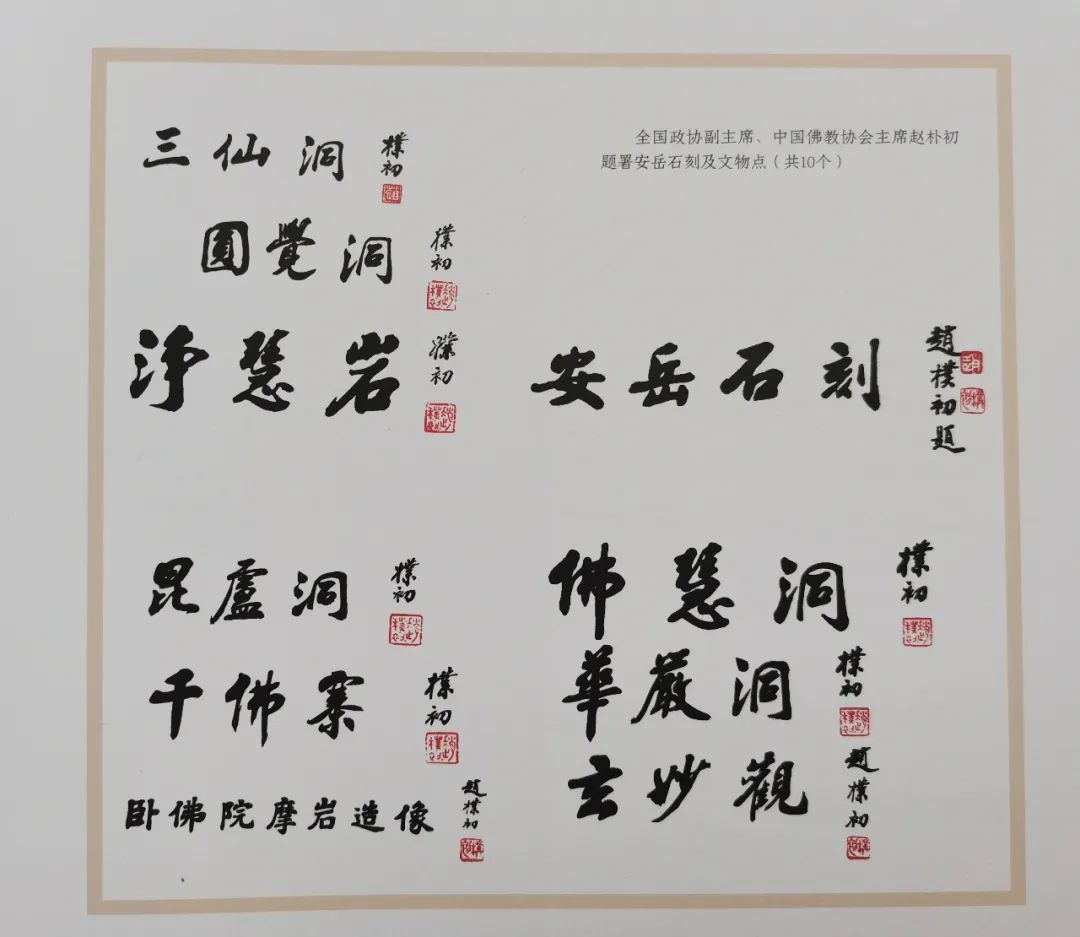 全国政协副主席、中国佛教协会主席赵朴初
题署安岳石刻及文物点（共10个）
三仙洞
樸初
圓覺洞
樸初
淨慧岩
樸初
安岳石刻
趙樸初題
毘盧洞
樸初
千佛寨
樸初
卧佛院摩岩造像
趙樸初
佛慧洞
樸初
華嚴洞
樸初
玄妙觀
趙樸初